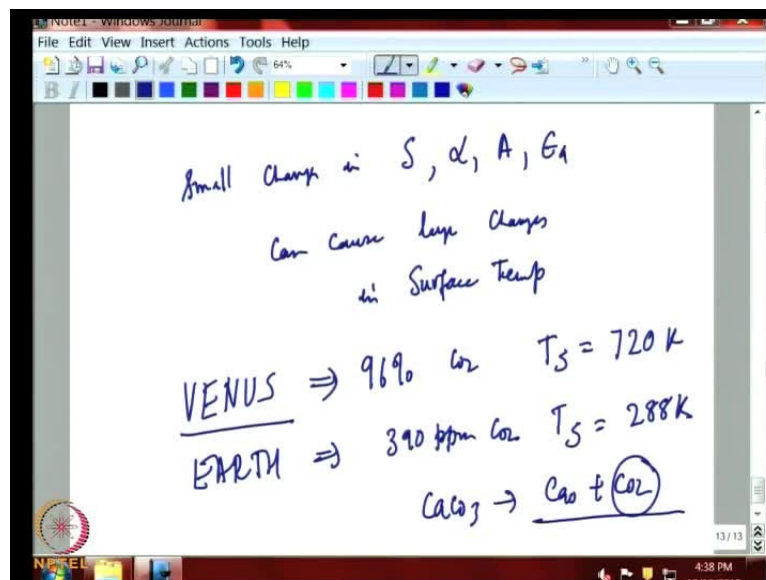 Note1 - Windows Journal
File Edit View Insert Actions Tools Help
64%
B I
Small Change in S, α, A, Ea
Can Cause large Changes
in Surface Temp
VENUS ⇒ 96% CO2 TS = 720 K
EARTH ⇒ 390 ppm CO2 TS = 288K
CaCO3 → CaO + CO2
13 / 13
NPTEL
4:38 PM